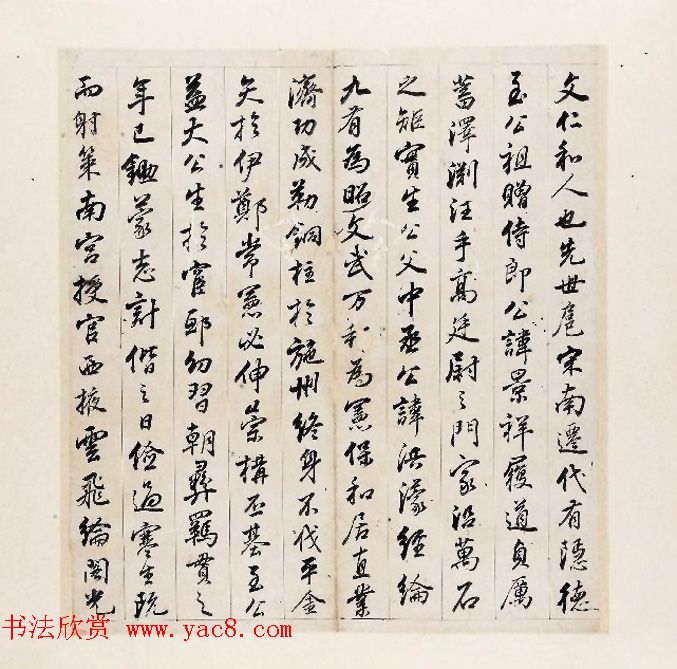 文仁和人也先世扈宋南遷代有隱德
至公祖贈侍郎公諱景祥履道貞厲
蓄澤淵汪乎高廷尉之門家沿萬石
之矩實生公父中丞公諱洪濛經綸
九有為昭文武万邦為憲保和居直業
濟功成勒銅柱於施州終身不伐平金
矢於伊鄭常憲必伸榮構丕基至公
益大公生於宦邸幼習朝彞羈貫之
年已鋤蒙志計偕之日儉過寒生玩
而射策南宮授官西掖雲飛綸閣光
书法欣赏 www.yac8.com